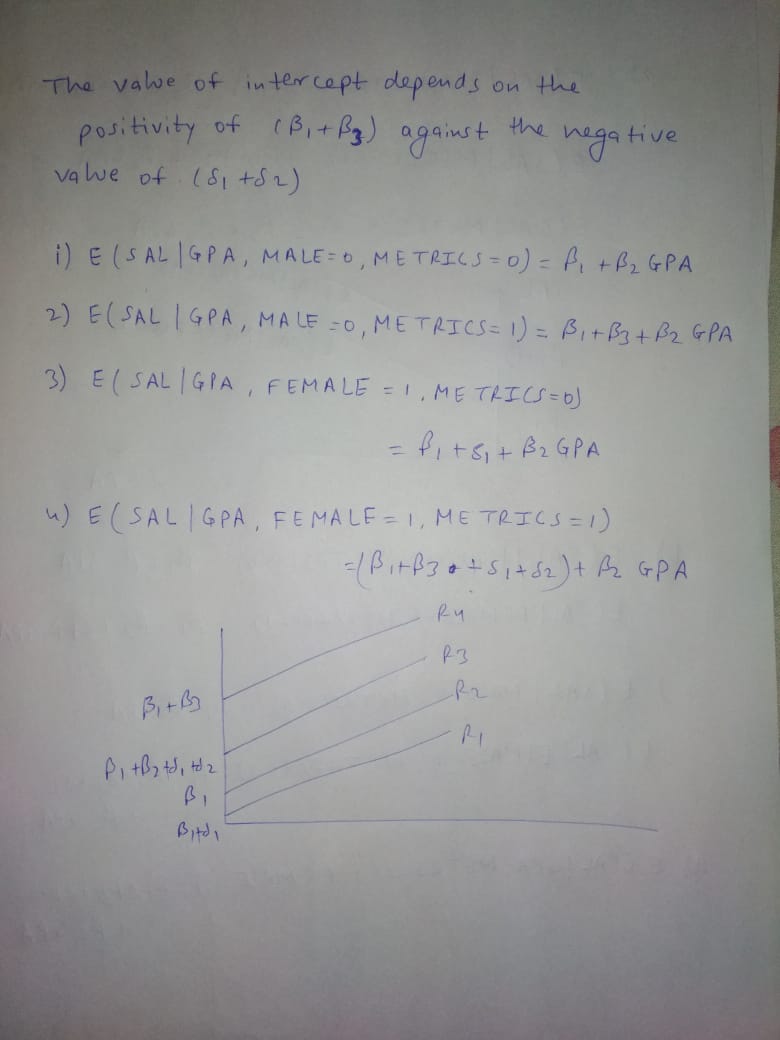 The value of intercept depends on the
positivity of (β1+β3) against the negative
value of (δ1 +δ2)
i) E (SAL |GPA, MALE=0, METRICS=0) = β1 +β2 GPA
2) E(SAL | GPA, MALE =0, METRICS=1) = β1+β3+β2 GPA
3) E( SAL |GPA , FEMALE =1, METRICS=0)
= β1 +δ1 + β2 GPA
4) E (SAL |GPA, FEMALE=1, METRICS=1)
=(β1+β3 +δ1+δ2)+ β2 GPA
R4
R3
β1+β3
R2
R1
β1+β2+d1+d2
β1
β1+d1